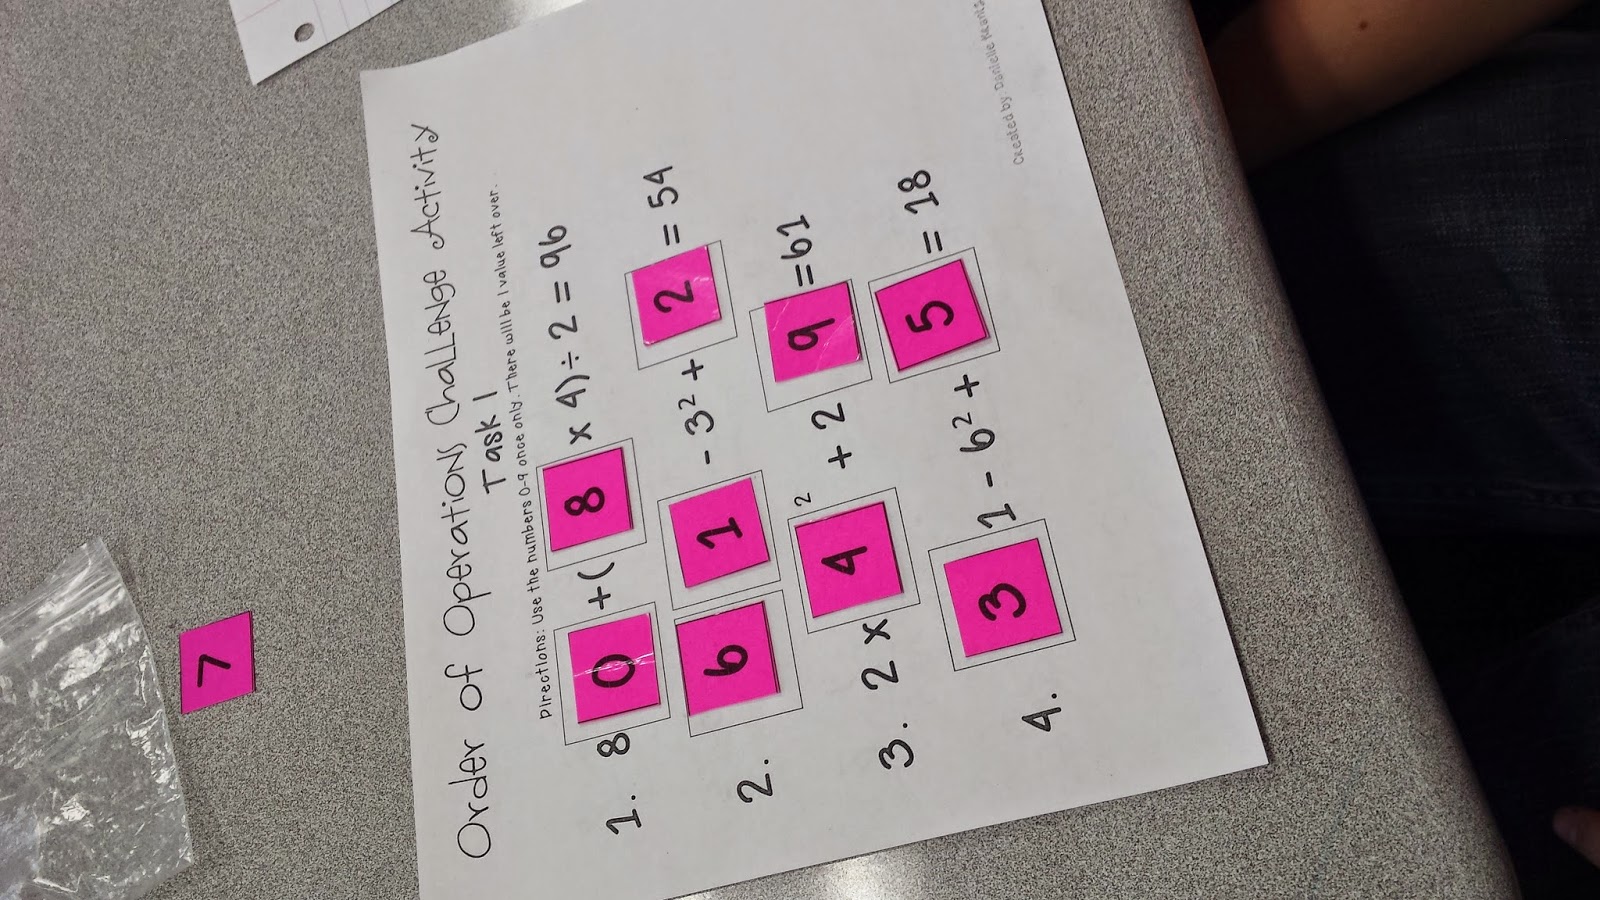 Order of Operations Challenge Activity
Task 1
Directions: Use the numbers 0-9 once only. There will be 1 value left over.
1. 80 + (8 x 4) ÷ 2 = 96
2. 61 - 3² + 2 = 54
3. 2 x 4² + 29 = 61
4. 31 - 6² + 5 = 18
7
Created by: Danielle